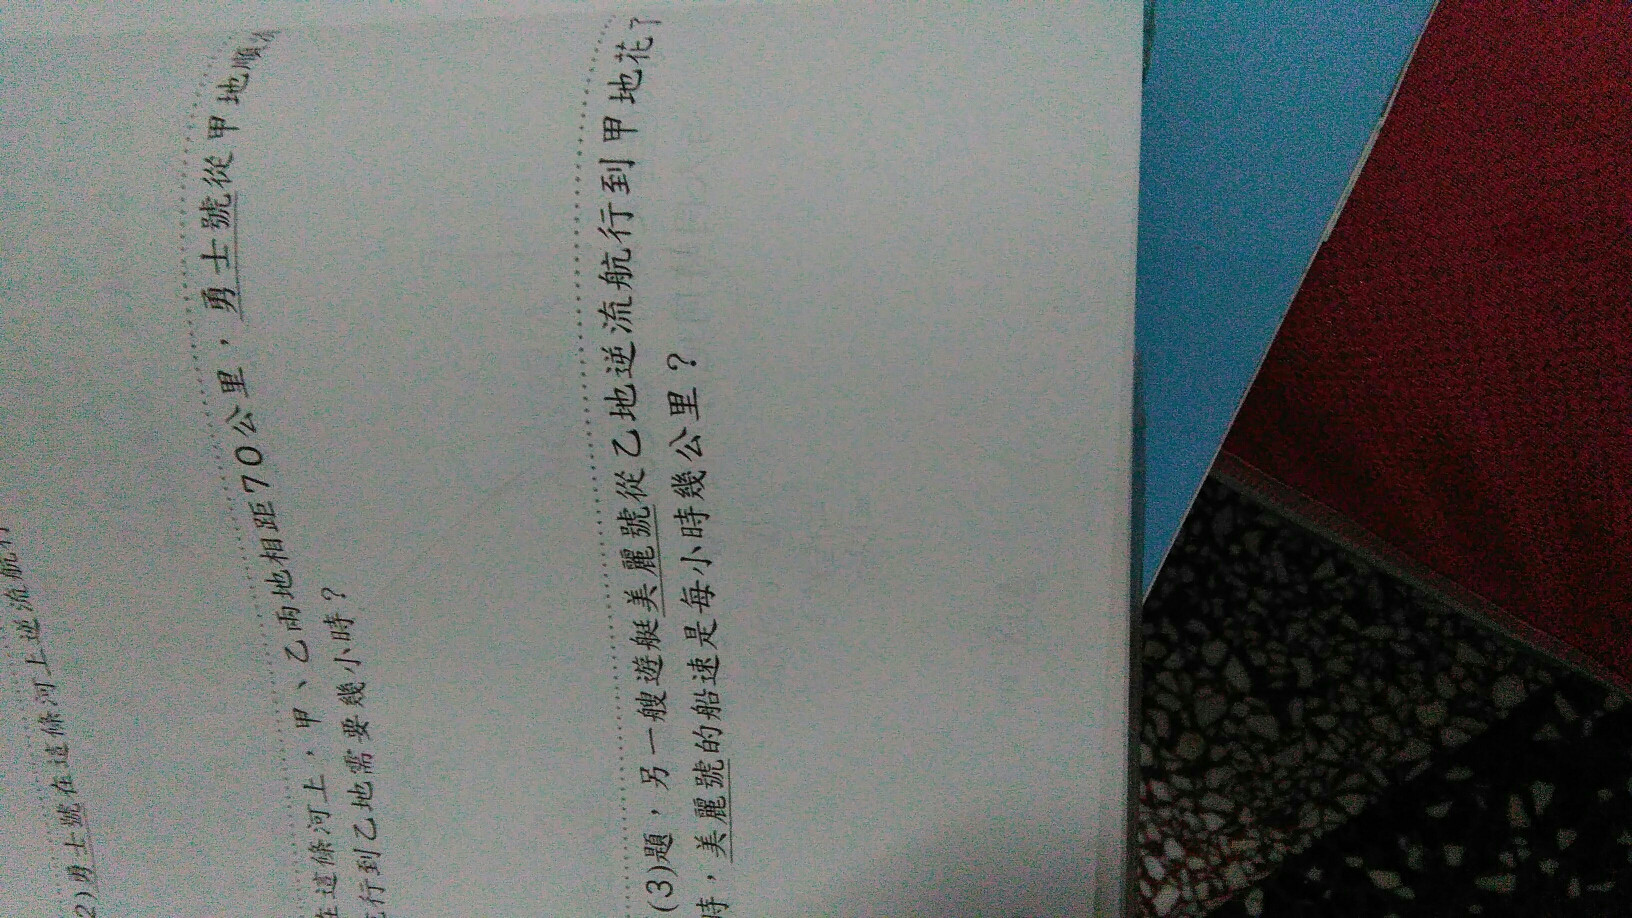 2)勇士號在這條河上逆流航行
在這條河上，甲、乙兩地相距70公里，勇士號從甲地順
行到乙地需要幾小時？
(3)題，另一艘遊艇美麗號從乙地逆流航行到甲地花了
時，美麗號的船速是每小時幾公里？